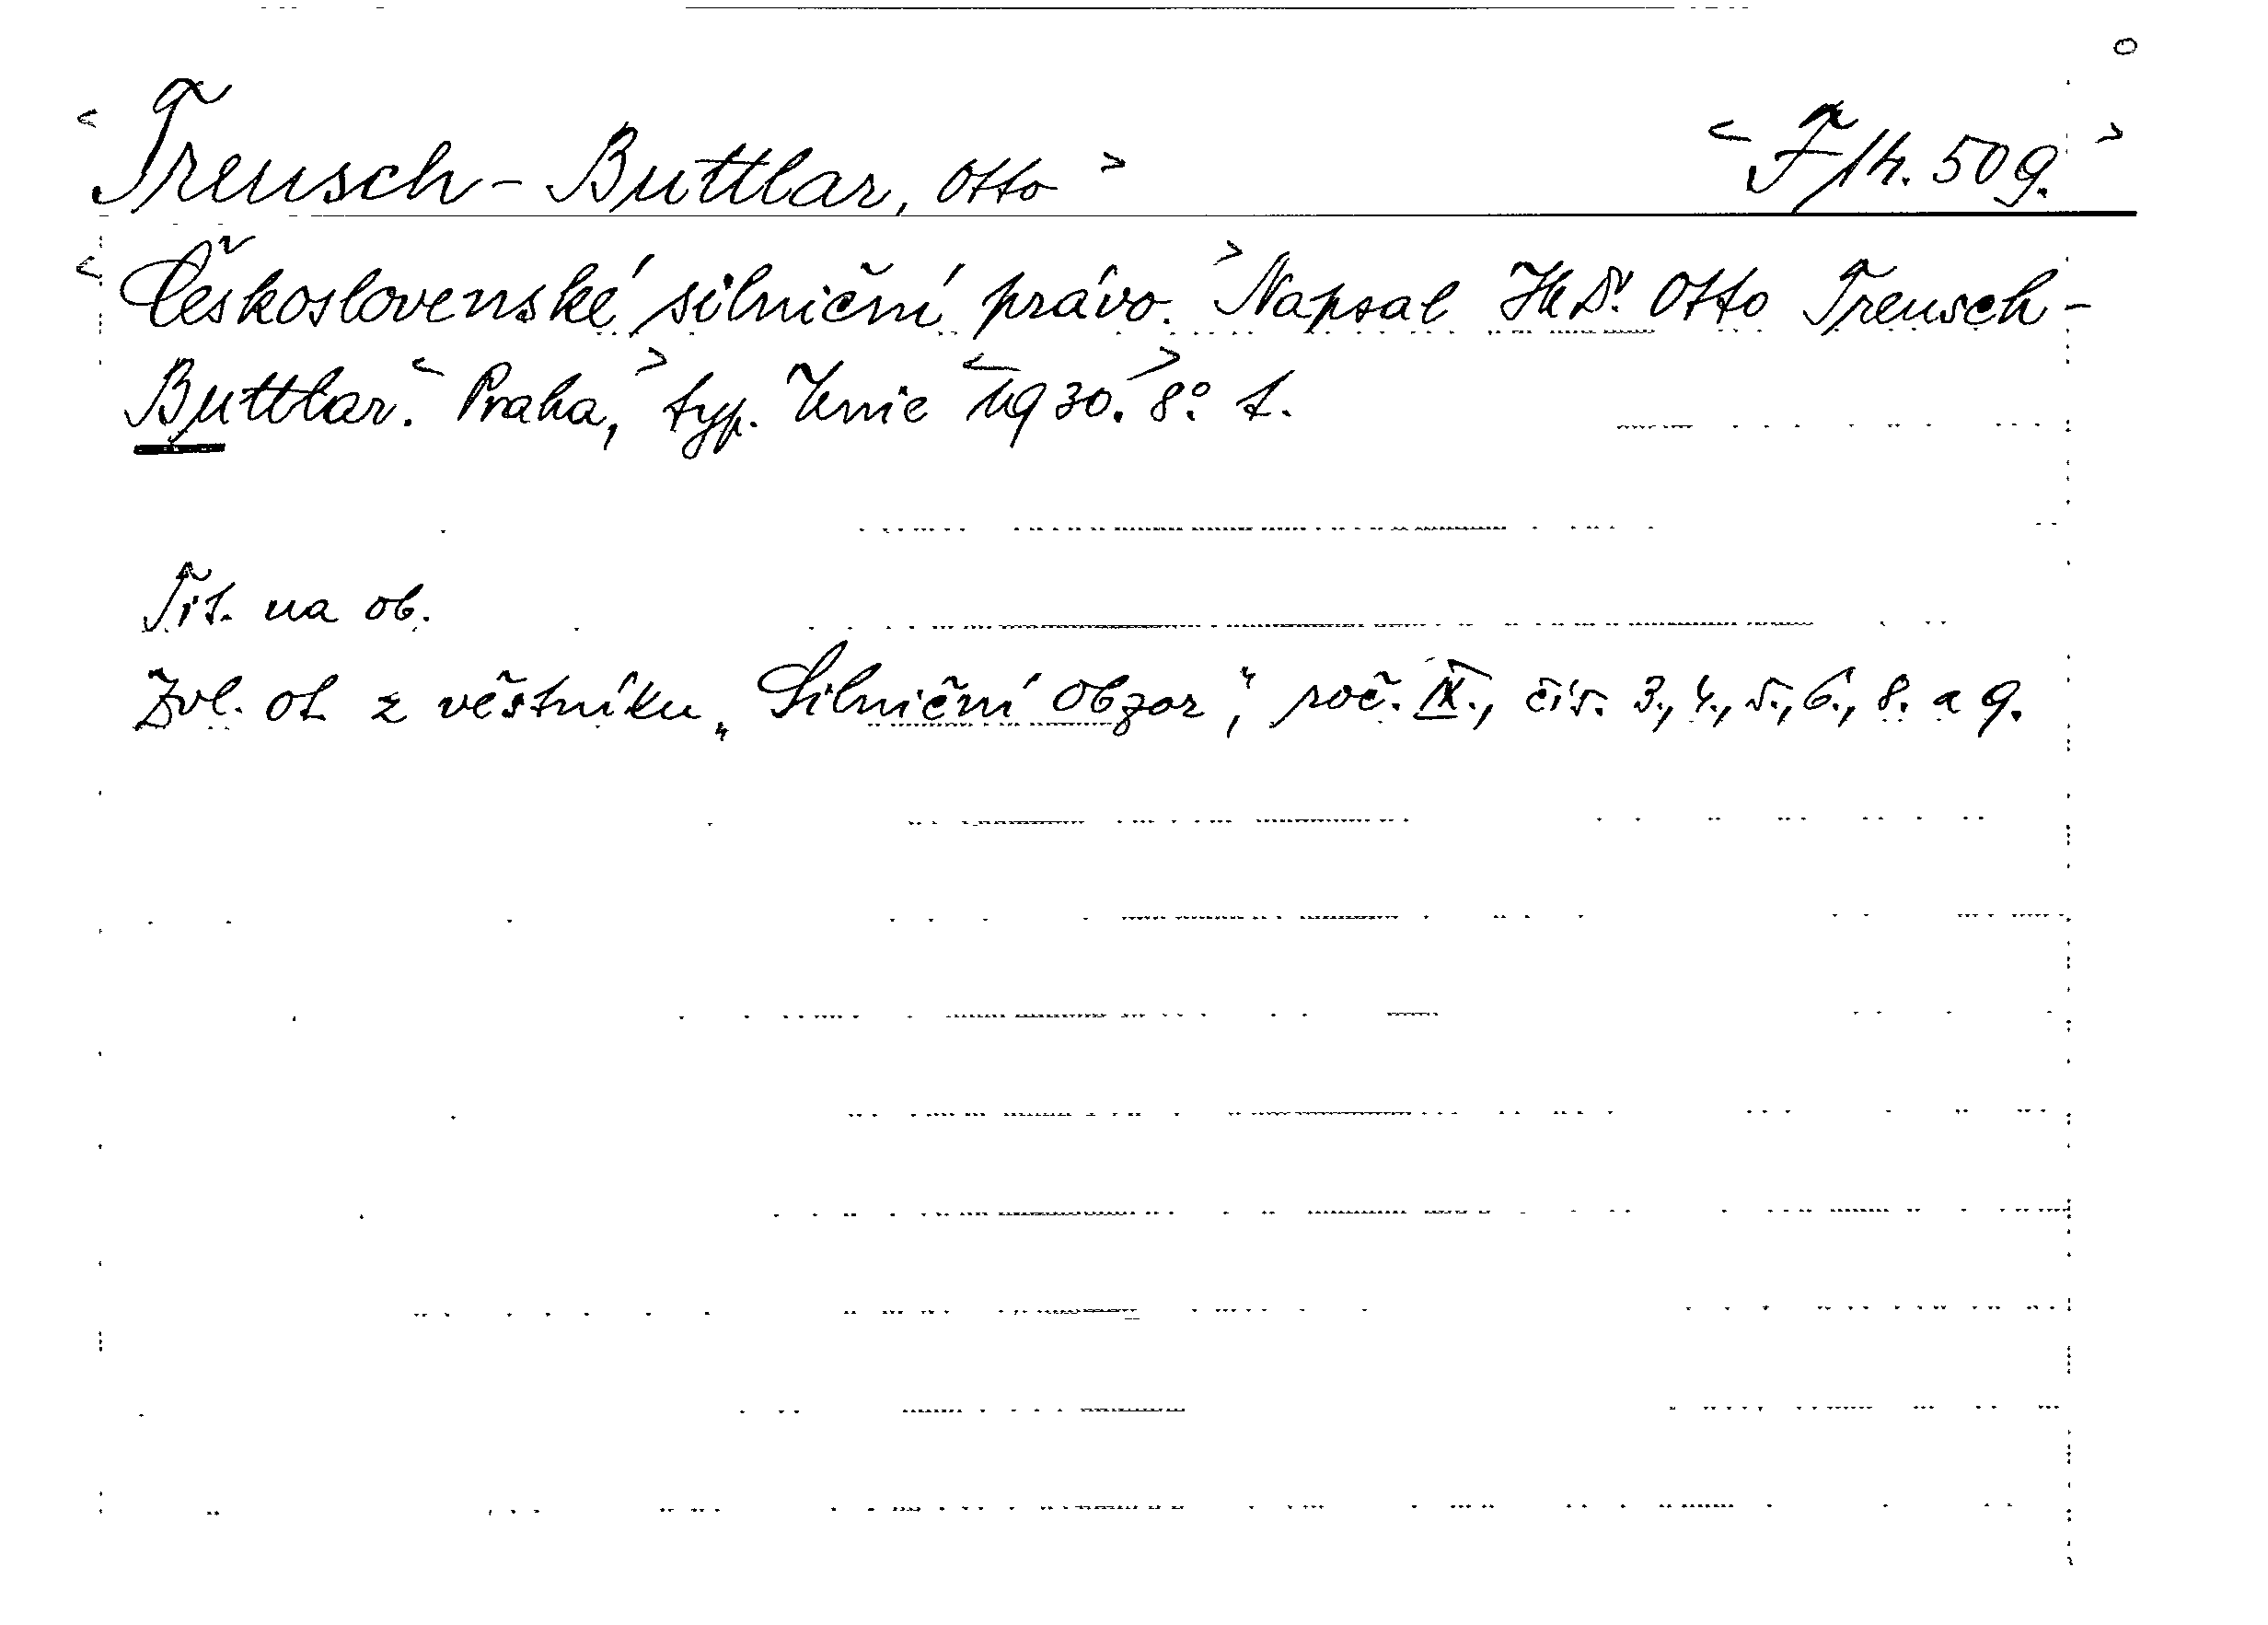 < Treusch-Buttlar, Otto > < F 14.509. >
< Československé silniční právo. > Napsal JUDr. Otto Treusch-
Buttlar. < Praha, > typ. Unie < 1930. > 8° t.
Tit. na ob.
Zvl. ot. z věstníku „Silniční obzor“, roč. IX., čís. 3., 4., 5., 6., 8. a 9.